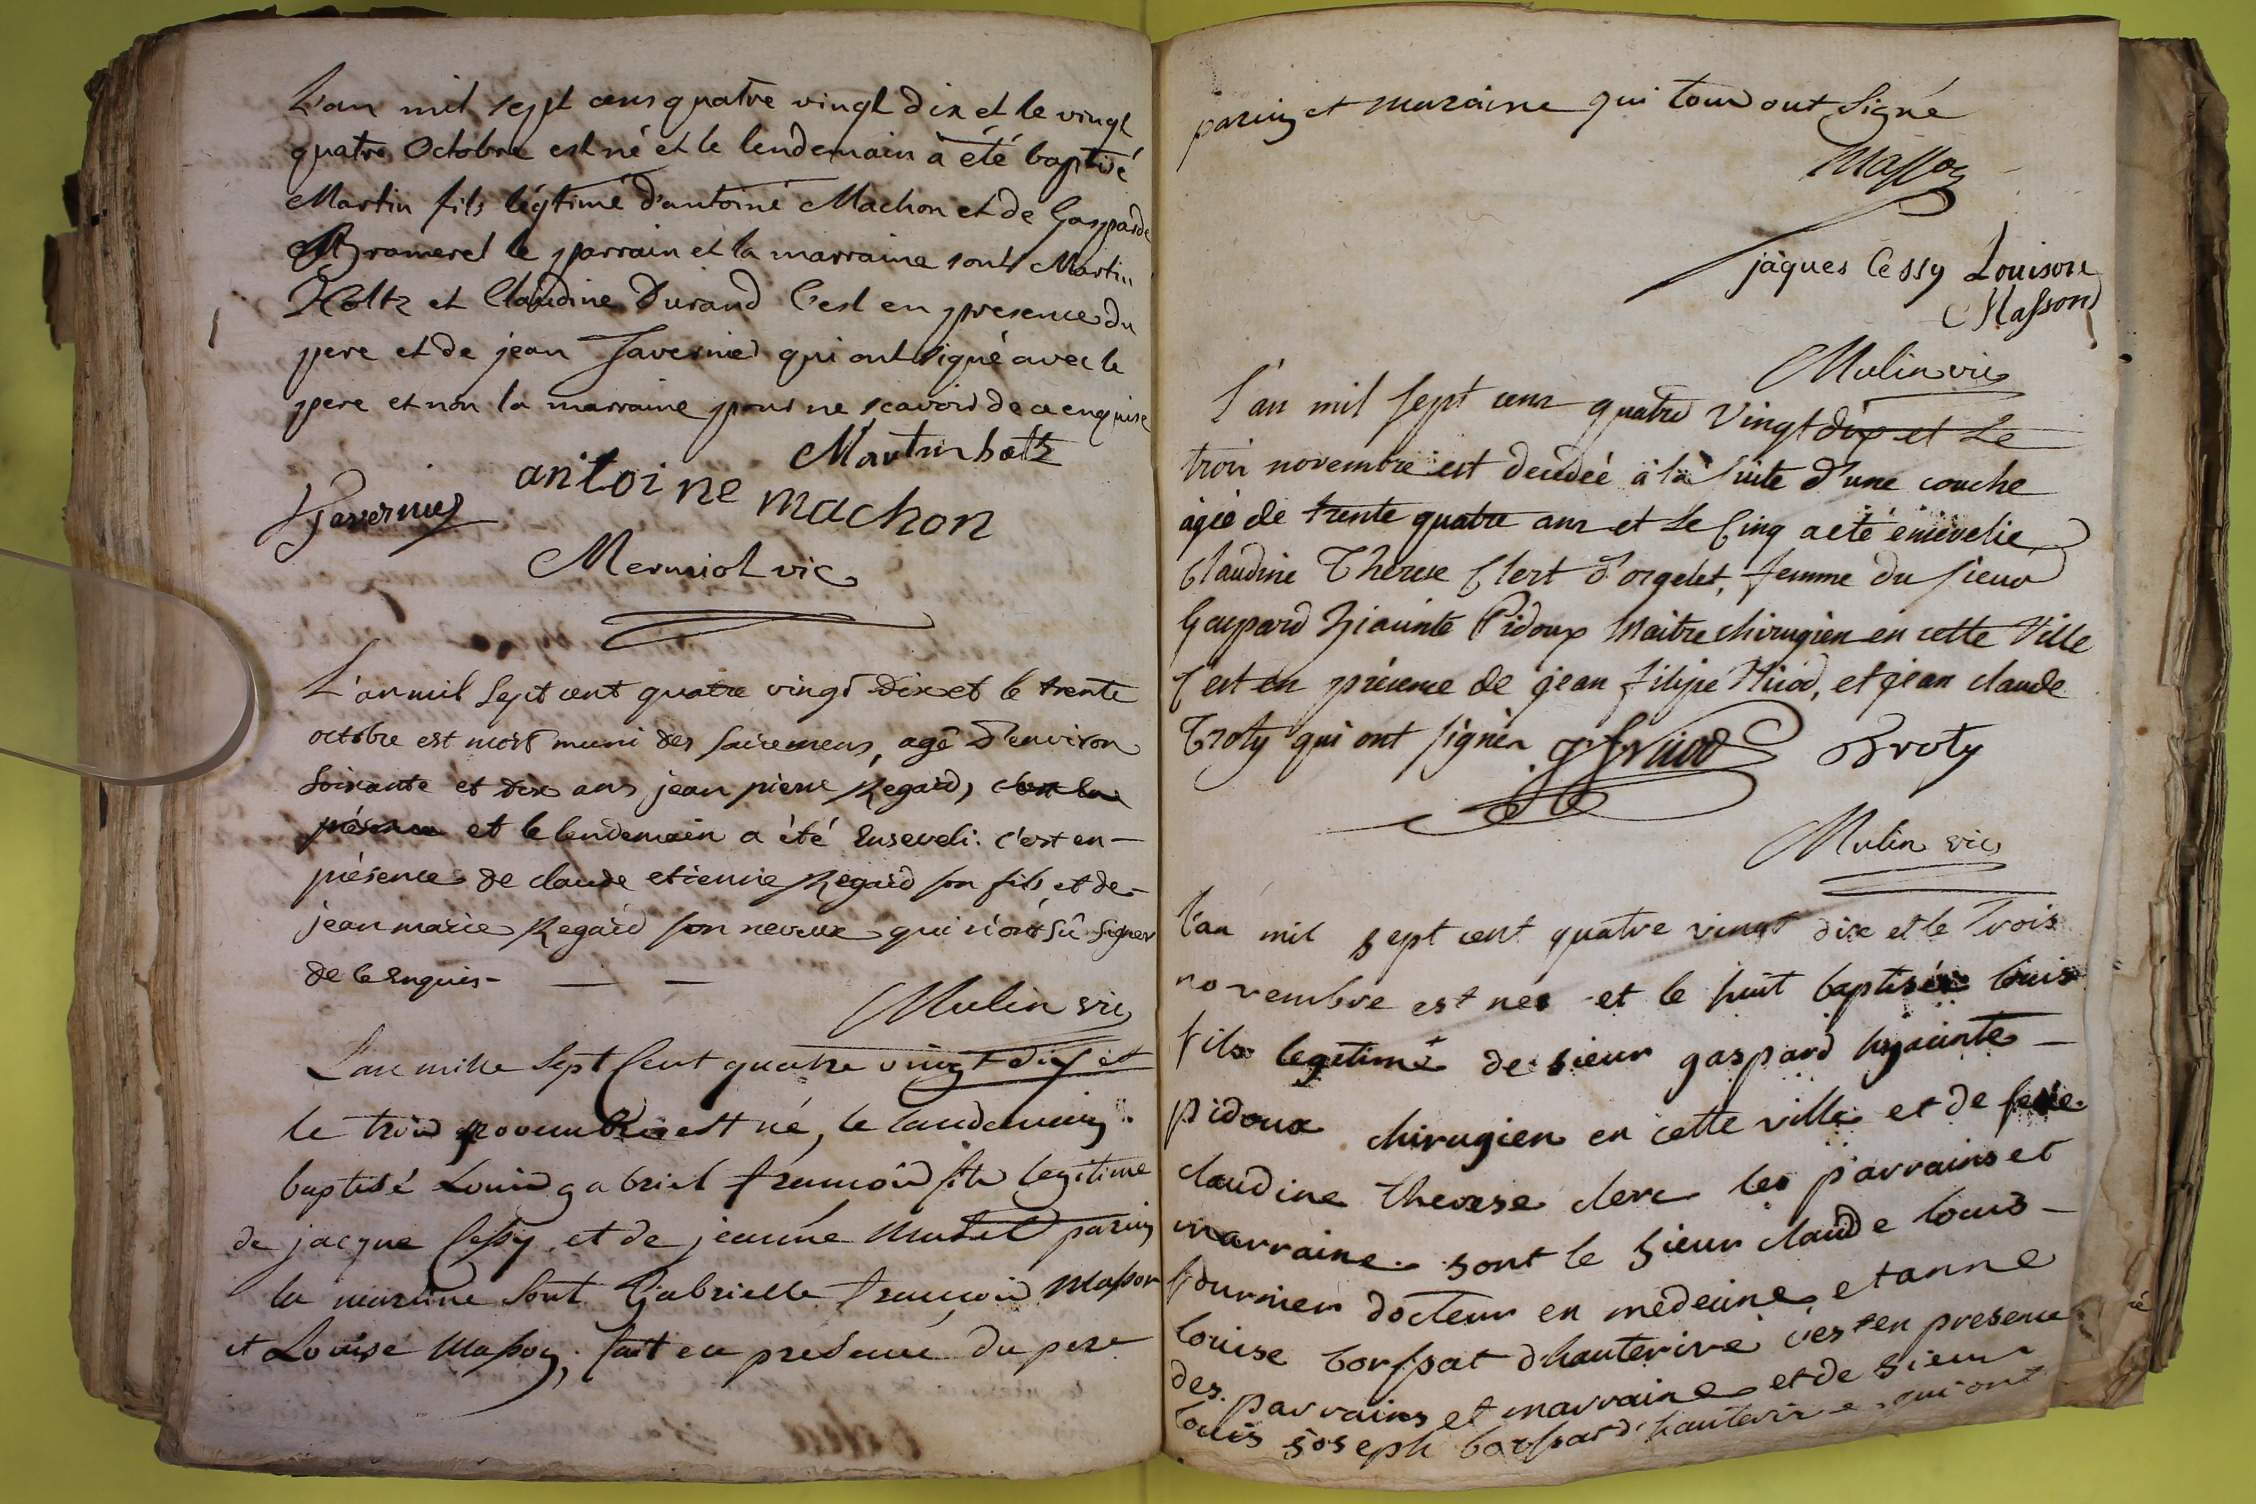 L'an mil sept cens quatre vingt dix et le vingt
quatre Octobre est né et le lendemain à été baptisé
Martin fils légtimé d'antoiné Machon et de Gasparde
Brameret le parrain et la marraine sont Martin
Holtz et Claudine Durand C'est en presence du
pere et de jean Tavernier qui ont signé avec le
pere et non la marraine pour ne scavoir de ce enquise
Martin holtz
antoine machon
JTavernier
Mermiol vic
L'an mil sept cent quatre vingt dix et le trente
octobre est mort muni des sacremens, agé d'environ
soixante et dix ans jean pierre Regard, c'est en
présence et le lendemain a été enseveli. c'est en
présence de claude etienne Regard son fils et de
jean marie Regard son neveux qui n'ont sû signer
de ce enquis
Mulin vic
L'an mille sept cent quatre vingt dix et
le trois novembre est né, le landemain
baptisé Louis gabriel françois fils legitime
de jacque Cessy et de jeanne parin
la maraine sont Gabrielle françois Masson
et Louise Masson, fait en présence du pere
parin et maraine qui tous ont signé
Masson
jâques Cessy Louison
Masson
Mulin vic
L'an mil sept cens quatre Vingt dix et Le
trois novembre est décédée à la suite d'une couche
agée de trente quatre ans et Le Cinq a eté ensevelie
Claudine Thérese Clert d'orgelet, femme du sieur
Gaspard Hiacinte Pidoux Maitre chirugien en cette Ville
C'est en présence de jean filipe Nicod, et jean claude
Broty qui ont signés gfNicod Broty
Mulin vic
l'an mil sept cent quatre vingt dix et le trois
novembre est né et le huit baptisé louis
fils legitime de sieur gaspard hyacinte
pidoux chirugien en cette ville et de feue
claudine therese clerc les parrains et
marraine sont le sieur claude louis
fournier docteur en medecine et anne
louise borssat dhauterive c'est en presence
des parrains et marraine et de sieur
louis joseph borssat d'hauterive qui ont